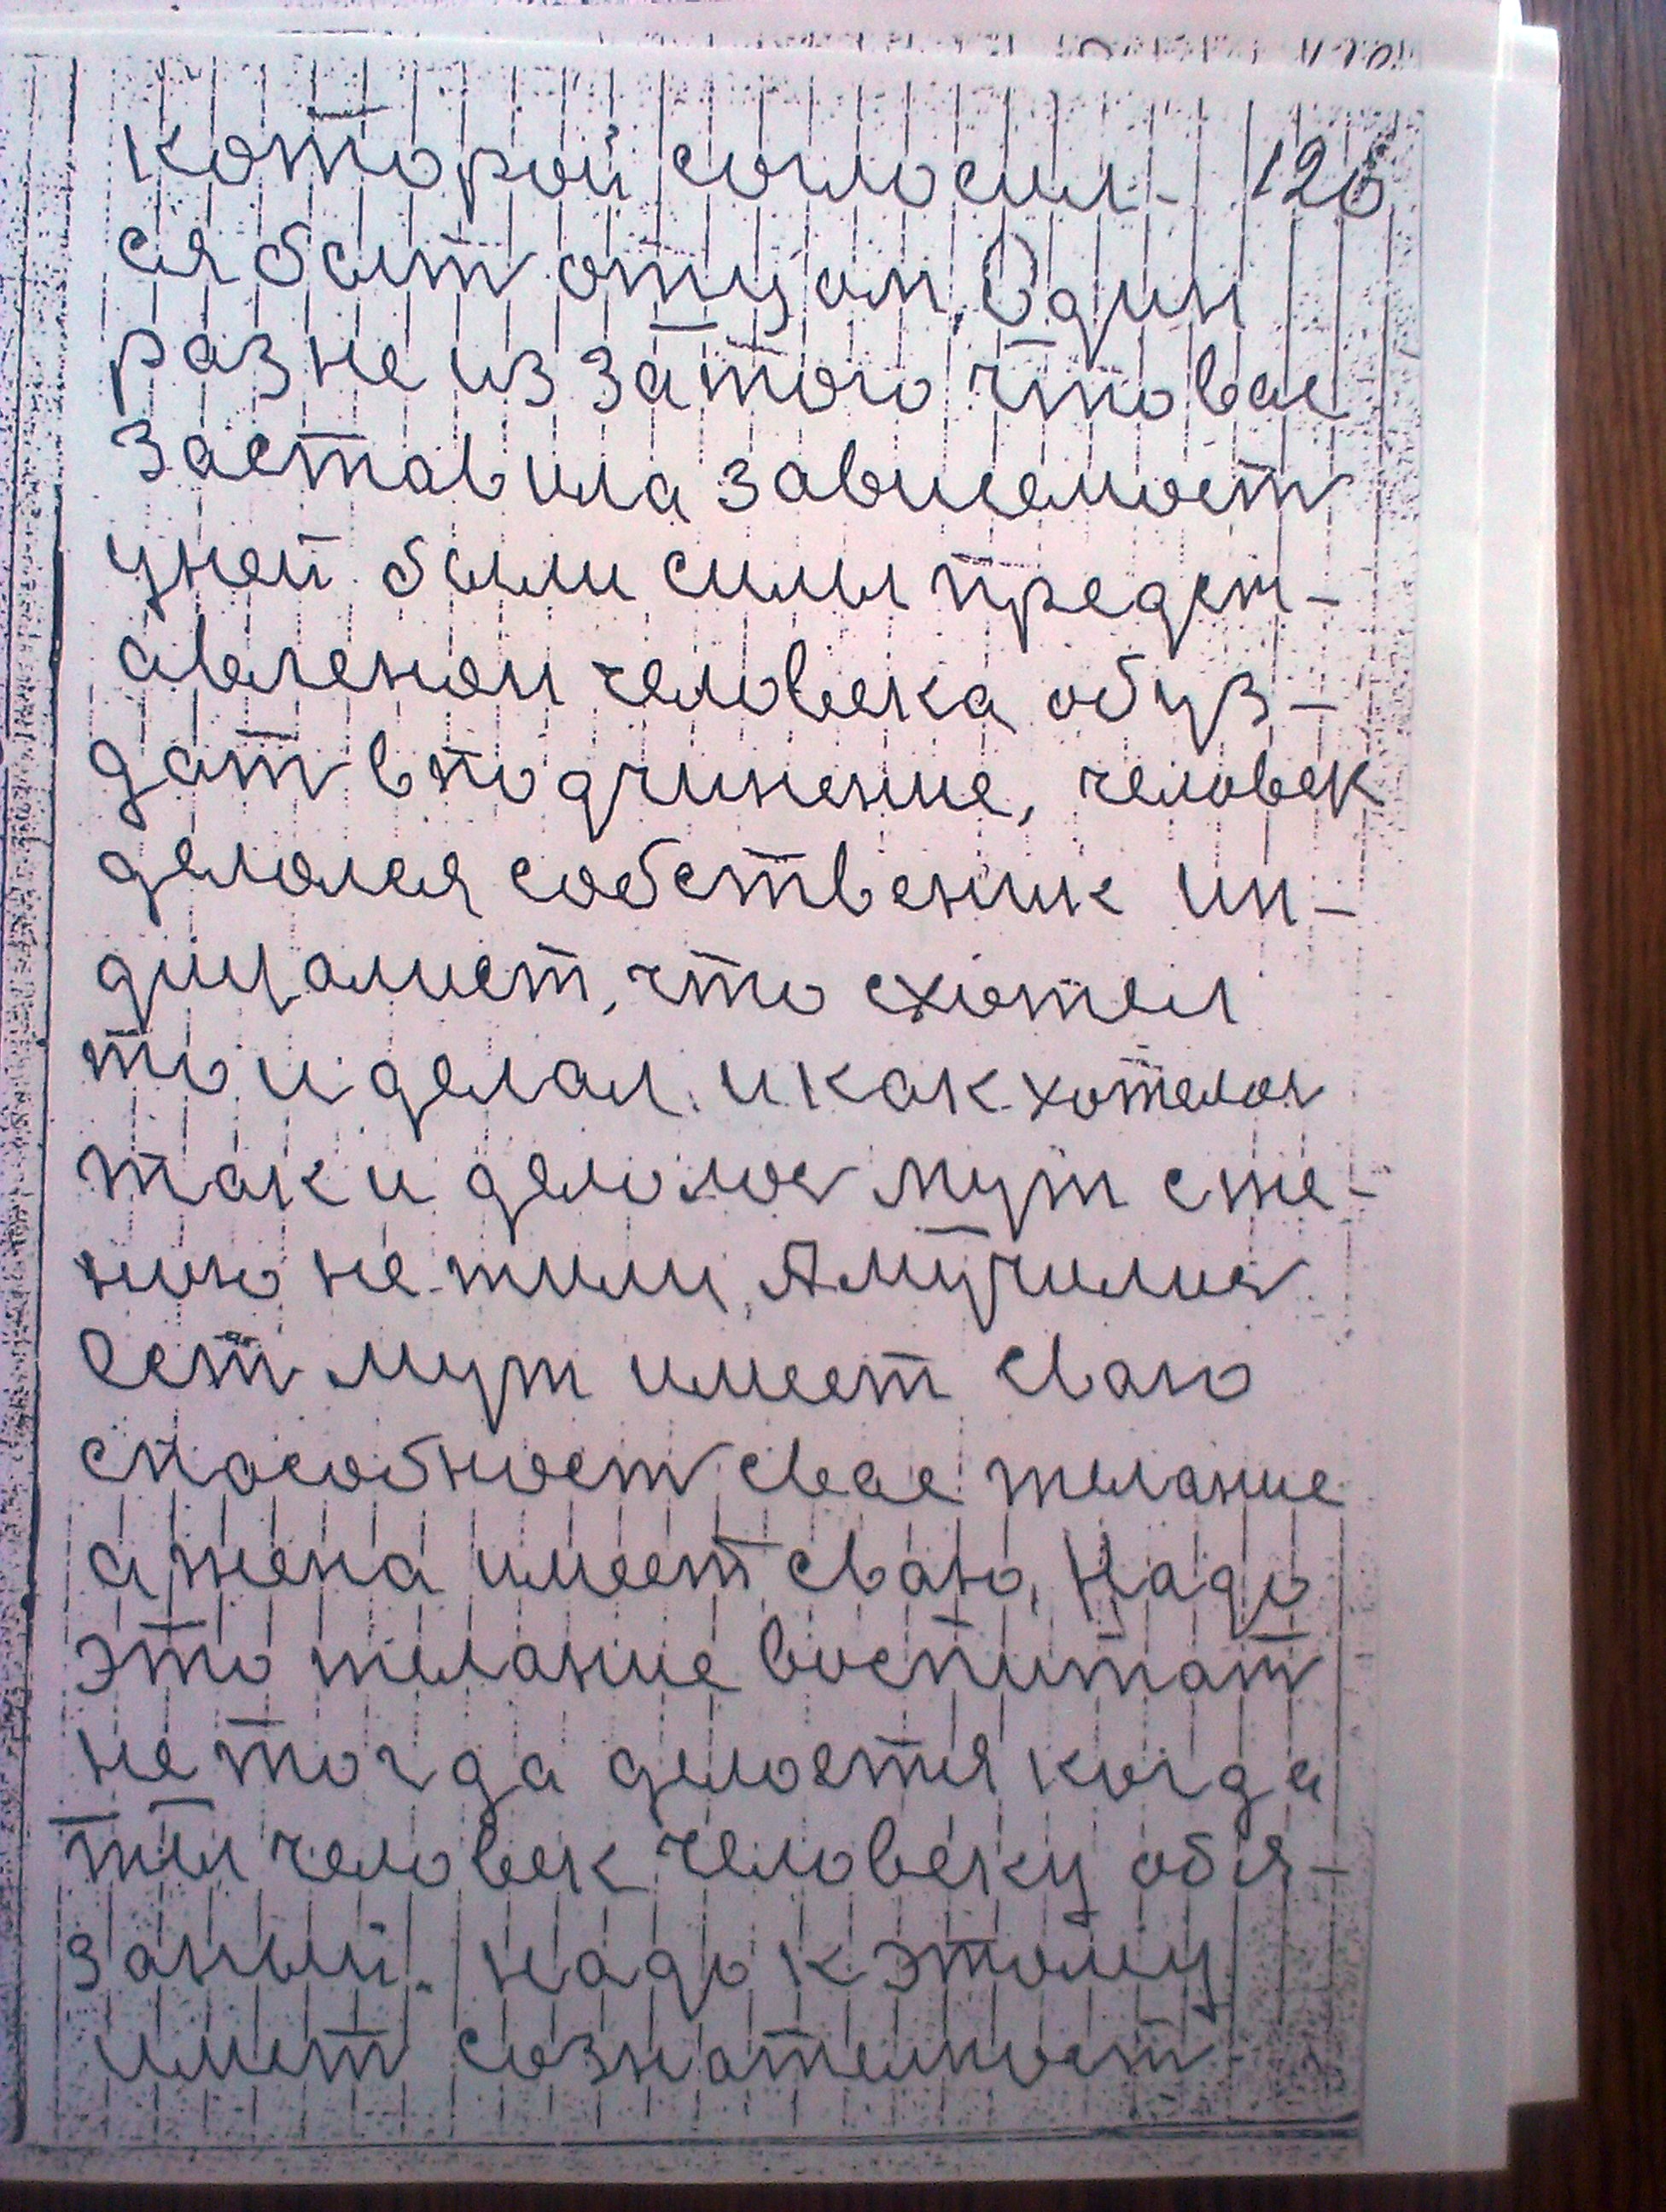 которой согласил- 126
ся быт отцом. Один
раз не из за того что вас
заставила зависемост
у ней были силы предст-
авленом человека обуз-
дат в подчинение, человек
делался собственик ин-
дицалист, что схотел
то и делал. и как хотелос
так и делолос муж с же-
ною не жили, А мучилис
Ест муж имеет сваю
способност свае желание
а жена имеет сваю, Надо
это желание воспитат
не тогда делоется когда
ты человек человеку обя-
заный. надо к этому
имет сознателност